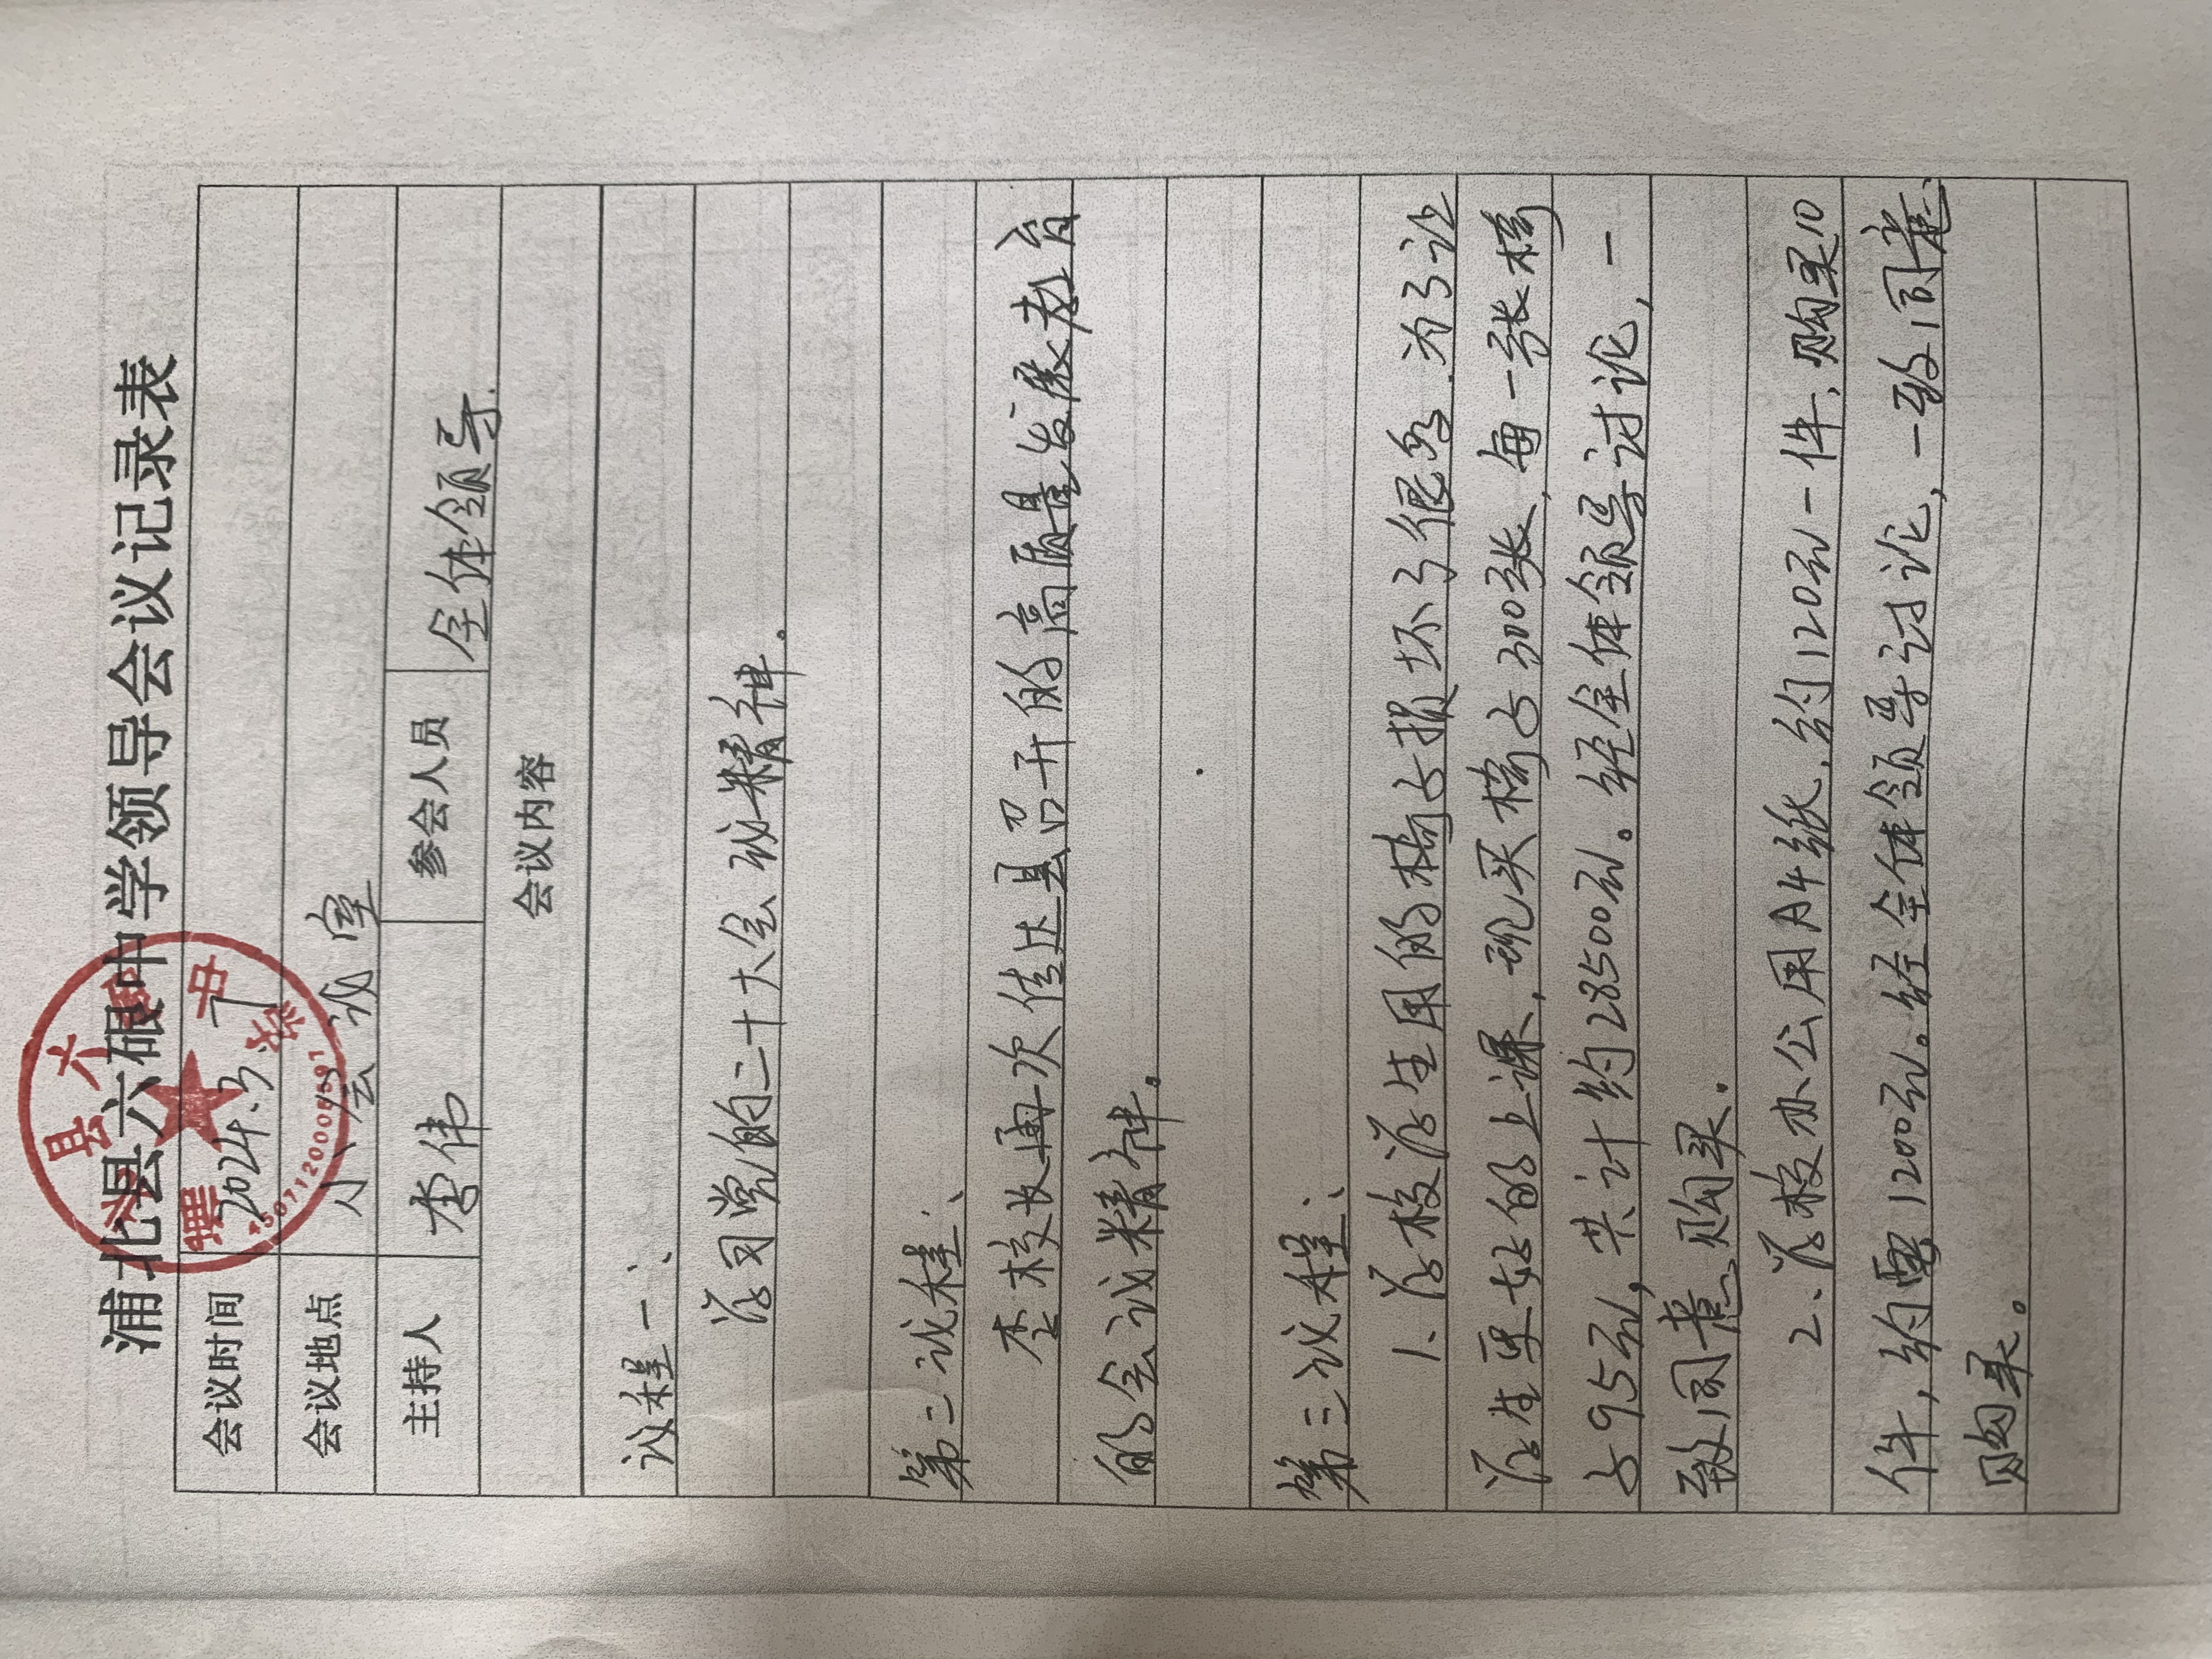 浦北县六硍中学领导会议记录表
会议时间 2024.3.7
会议地点 小会议室
主持人 李伟 参会人员 全体领导.
会议内容
议程一、
学习党的二十大会议精神.
第二议程、
李校长再次传达县召开的高质量发展教育
的会议精神。
第三议程、
1、学校学生用的椅占损坏了很多.为了让
学生更好的上课,现买椅占300张,每一张椅
占95元,共计约28500元。经全体领导讨论,一
致同意购买.
2、学校办公用A4纸,约120元一件,购买10
件,约需1200元。经全体领导讨论,一致同意
购买。
县六
中学
4507120008691